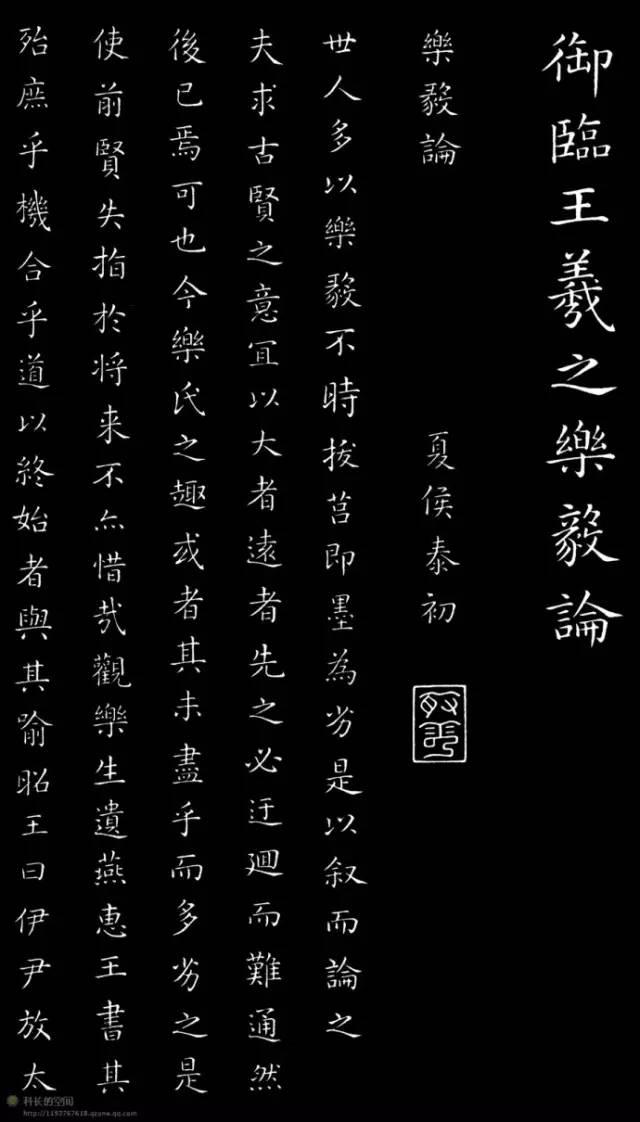 御臨王羲之樂毅論
樂毅論
夏侯泰初
世人多以樂毅不時拔莒即墨為劣是以叙而論之
夫求古賢之意宜以大者遠者先之必迂迴而難通然
後已焉可也今樂氏之趣或者其未盡乎而多劣之是
使前賢失指於将来不亦惜哉觀樂生遺燕惠王書其
殆庶乎機合乎道以終始者與其喻昭王曰伊尹放太
科长的空间
http://1193767618.qzone.qq.com